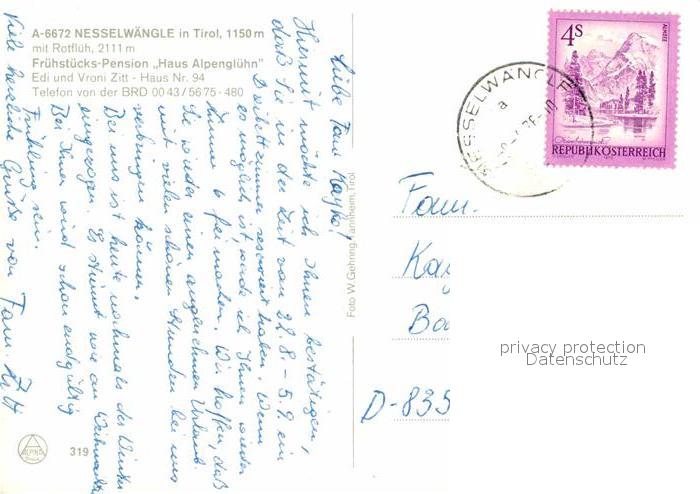 A-6672 NESSELWÄNGLE in Tirol, 1150 m
mit Rotflüh, 2111 m
Frühstücks-Pension „Haus Alpenglühn"
Edi und Vroni Zitt - Haus Nr. 94
Telefon von der BRD 00 43 / 56 75 - 480
Liebe Fam.
Hiermit möchte ich Ihnen bestätigen,
daß Sie in der Zeit vom 22.8 - 5.9 ein
Dreibettzimmer reserviert haben. Wenn
es möglich ist werde ich Ihnen wieder
Zimmer 6 frei machen. Wir hoffen, daß
Sie wieder einen angenehmen Urlaub
mit vielen schönen Stunden bei uns
verbringen können.
Bei uns ist heute nochmals der Winter
eingezogen. Es stürmt wie an Weihnachten
Bei Ihnen wird schon endgültig
Frühling sein.
Viele herzliche Grüße von Fam. Zitt
Foto W. Gehring, Tannheim, Tirol
ALPINE
319
4S
ALMSEE
REPUBLIK ÖSTERREICH
NESSELWÄNGLE
a
Fam.
D-835
privacy protection
Datenschutz